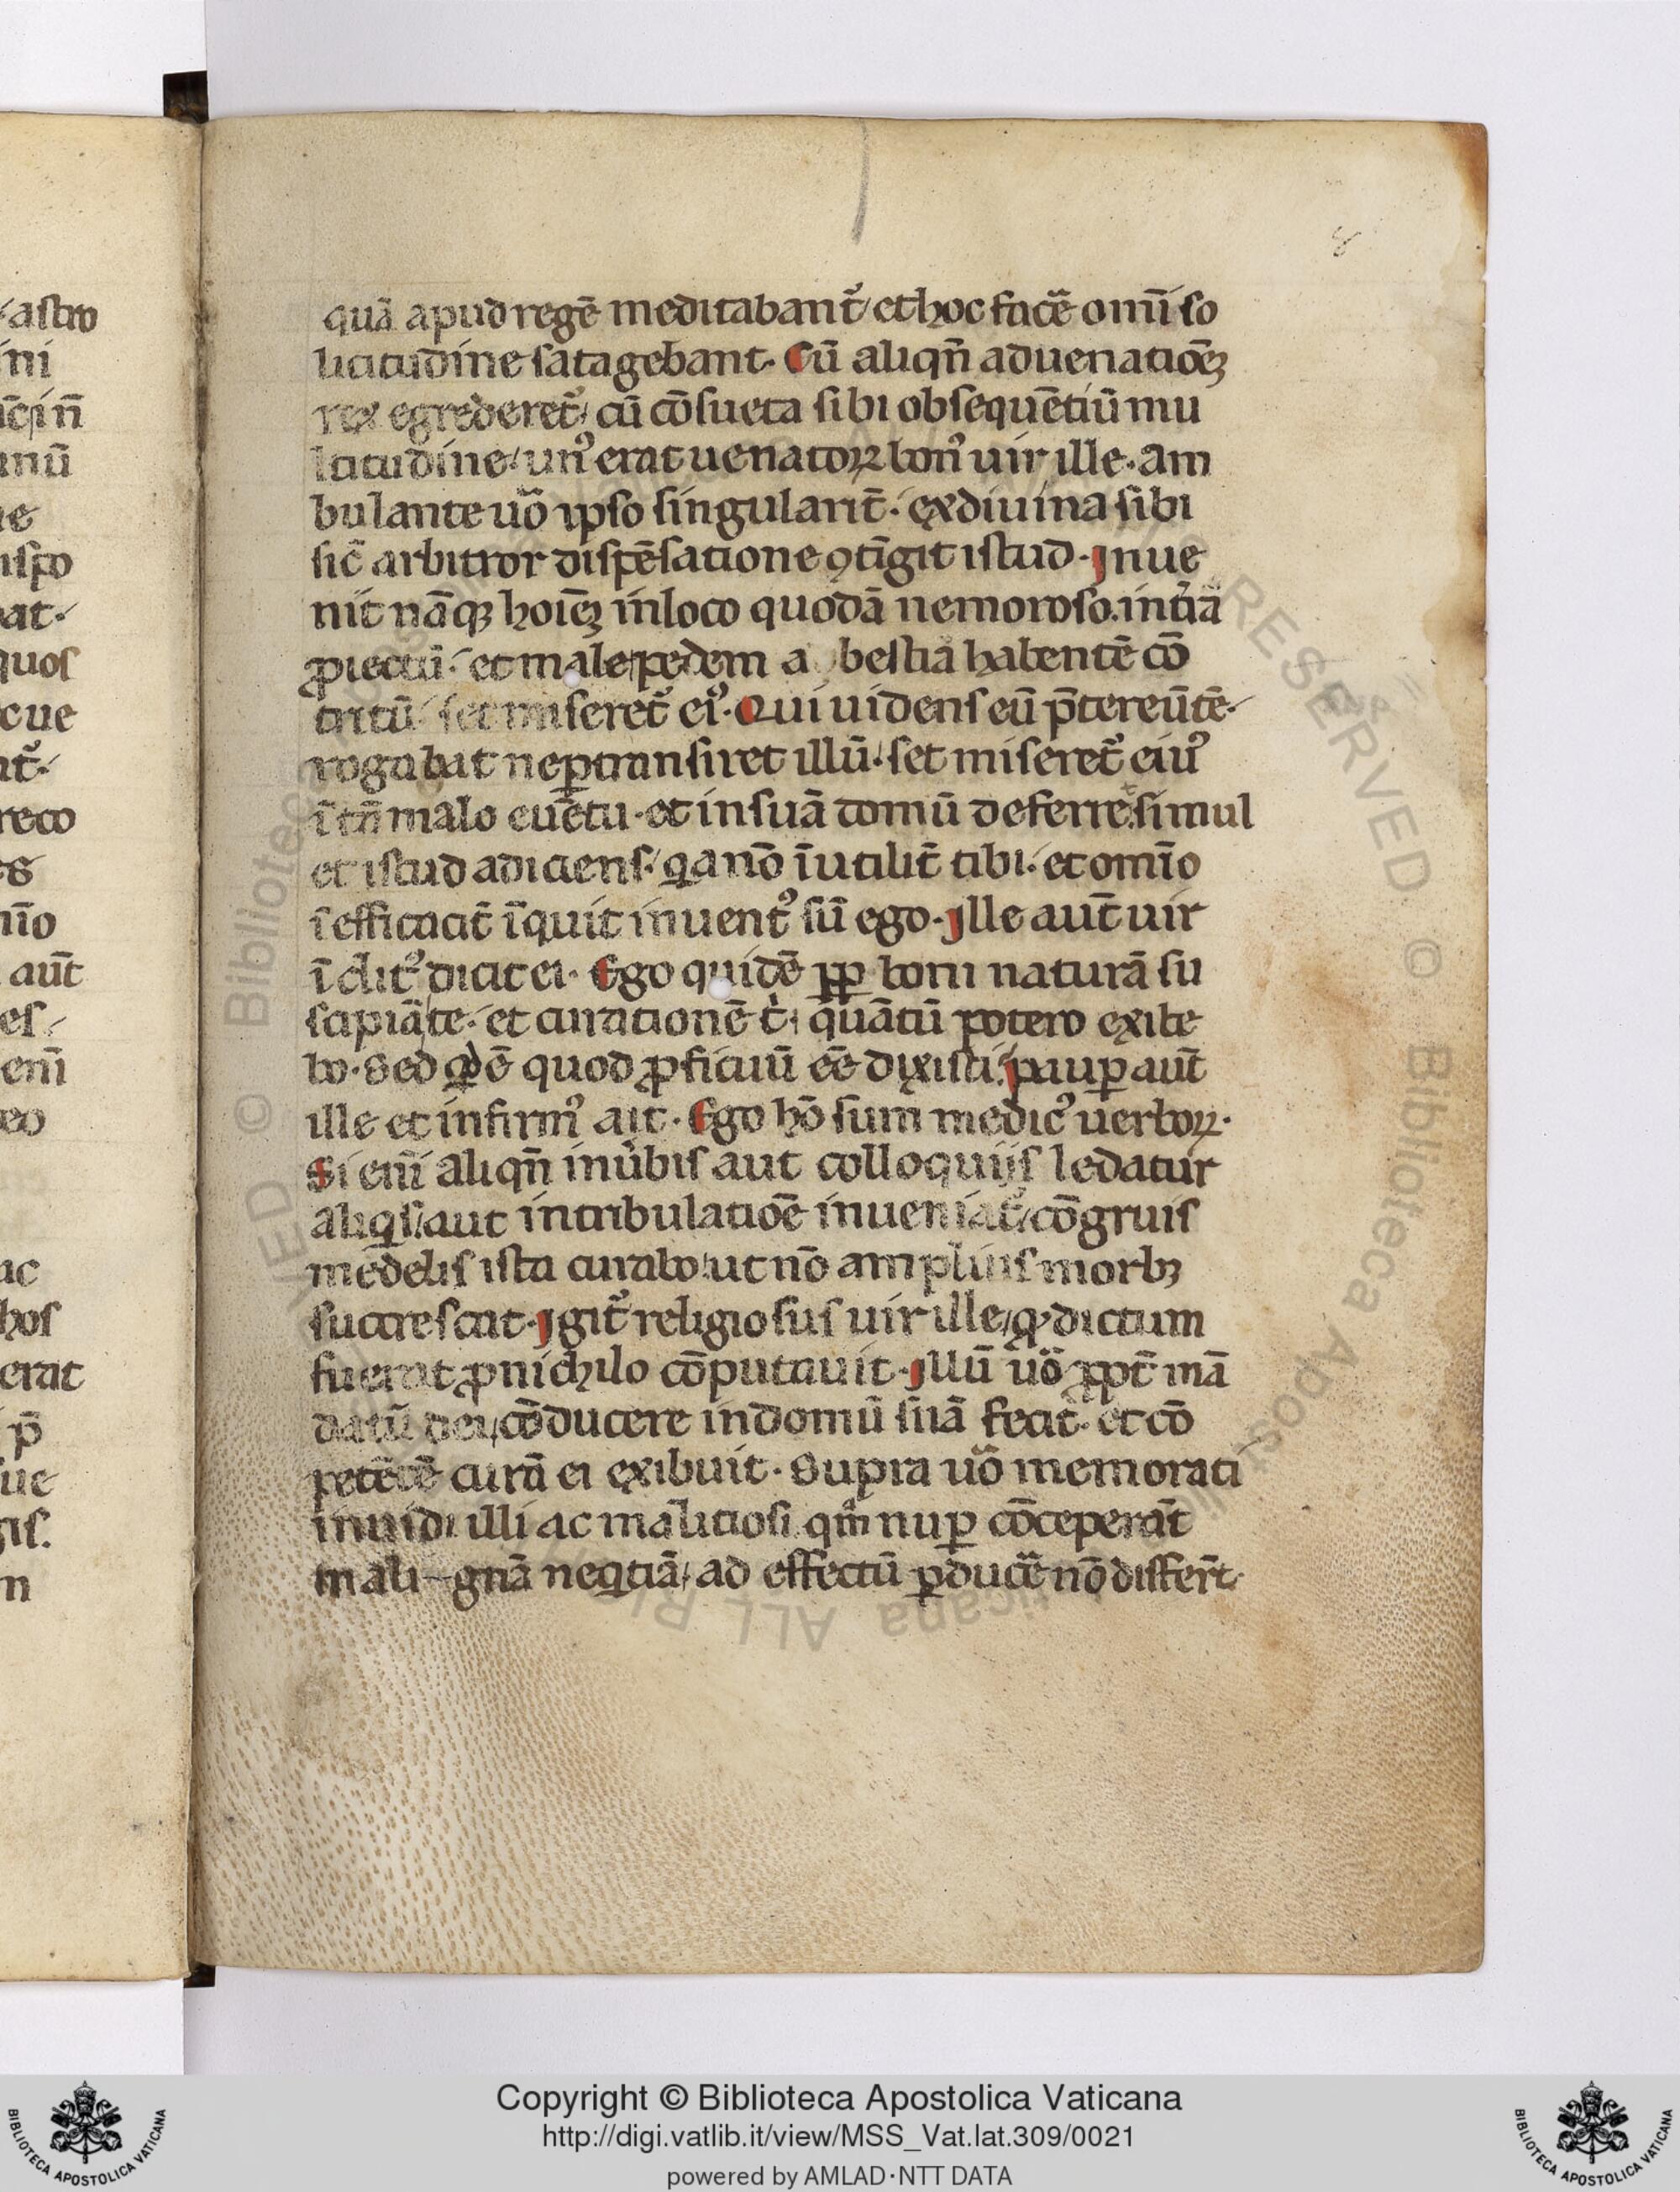 8
quā apud regē meditabant᷑ et hoc facẽ omī so
licitudine satagebant. Cū aliqn̄ ad uenatiōeꝫ
rex egrederet᷑, cū cōsueta sibi obsequētiū mu
ltitudine, un᾽ erat uenatoꝝ bon᾽ uir ille. Am
bulante uo᷑ ipso singularit̄. ex diuina sibi
sic̄ arbitror dispēsatione ꝯtīgit istud. Inue
nit nāqꝫ hoīeꝫ in loco quodā nemoroso. in t᷑rā
ꝓiectū. et male pedem a bestia habentē cō
tritū. set miseret᷑ ei᾽. Qui uidens eū p̄tereūtē.
rogabat ne ꝑtransiret illū. set miseret᷑ eiu᾽
ī tn̄ malo euētu. et in suā domū deferret. simul
et istud adiciens. qa nō īutilit̄ tibi. et omīo
īefficacit̄ īquit inuent᾽ sū ego. Ille aut̄ uir
īclit᾽ dicit ei. Ego quidē ꝓp boni naturā su
scipiā te. et curationē t, quātū potero exibe
bo. Sed qd ē quod ꝓficiuū eē dixisti. pauꝑ aūt
ille et infirm᾽ ait. Ego hō sum medic᾽ uerboꝝ.
Si enī aliqn̄ in u᷑bis aut colloquiis ledatur
aliqs, aut in tribulatiōe inueniat᷑, cōgruis
medelis ista curabo, ut nō amplius morbꝫ
succrescat. Igit᷑ religiosus uir ille, qd dictum
fuerat ꝓ nichilo cōputauit. Illū uo᷑ ꝓpt̄ mā
datū dei, cōducere in domū suā fecit. et cō
petētē curā ei exibuit. Supra uo᷑ memorati
inuidi illi ac malitiosi qm̄ nuꝑ cōceperāt
mali-gnā neqtiā, ad effectū ꝑducẽ nō differt̄.
Copyright © Biblioteca Apostolica Vaticana
http://digi.vatlib.it/view/MSS_Vat.lat.309/0021
powered by AMLAD·NTT DATA